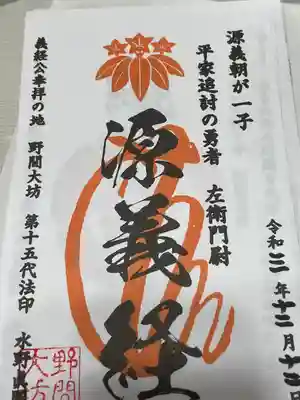 源義朝が一子
平家追討の勇者 左衛門尉
源義経
義経公奉拝の地 野間大坊 第十五代法印 水野
令和三年十二月十三日
野間
大坊